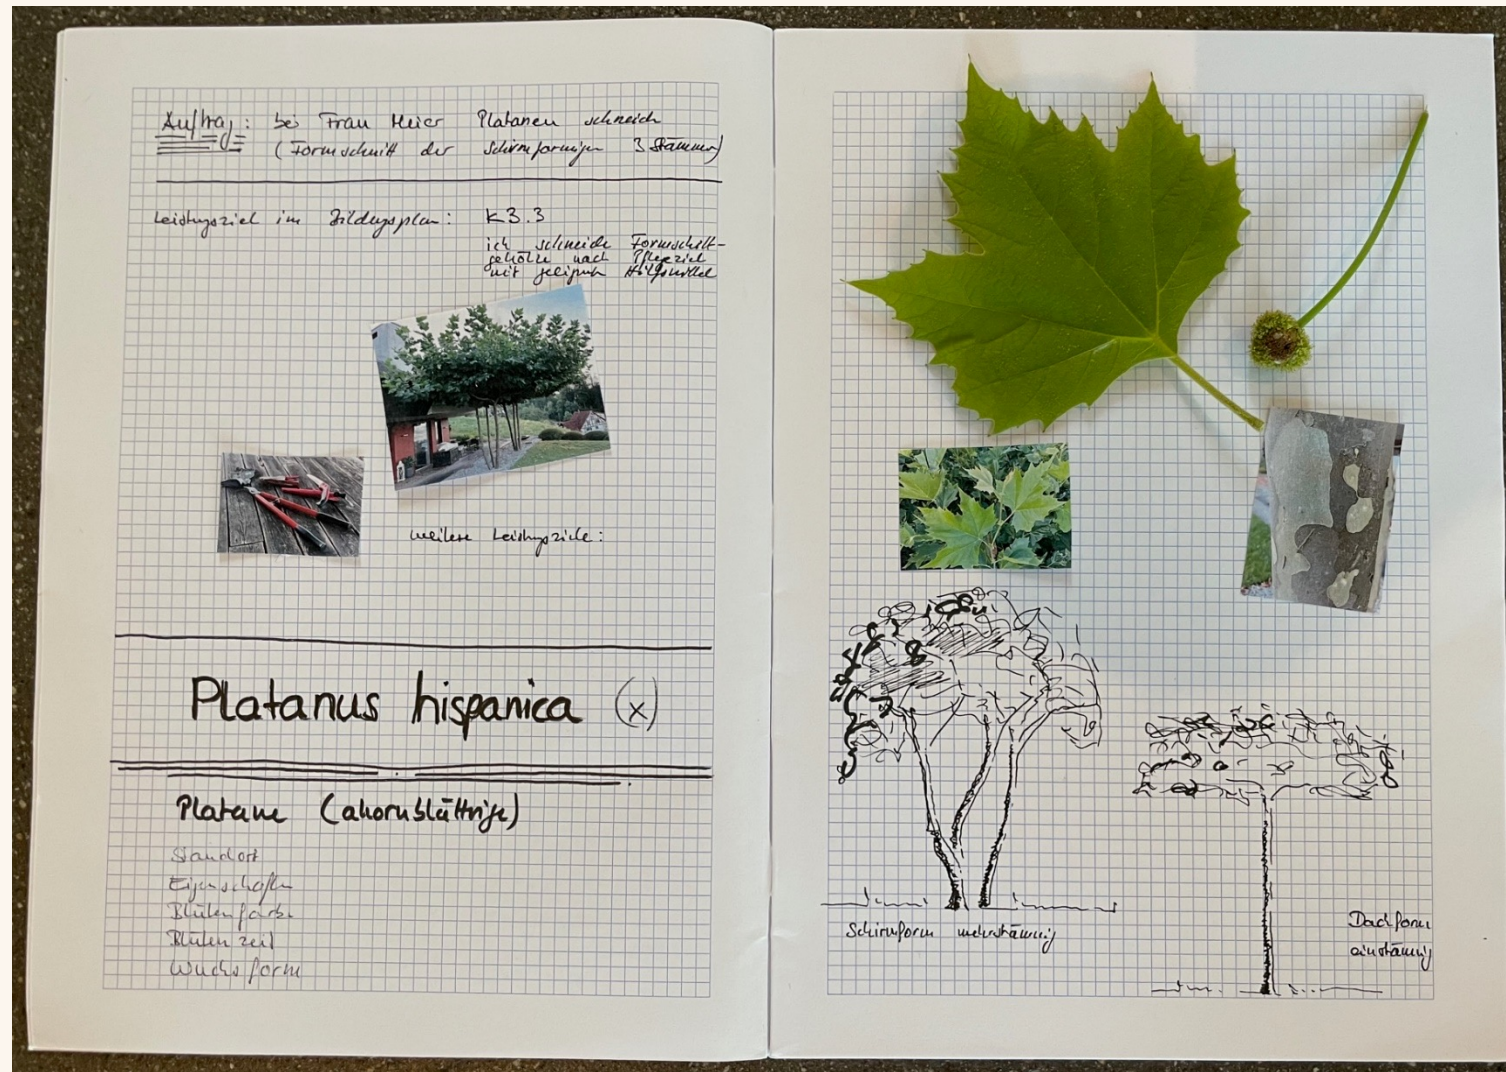 Auftrag: bei Frau Meier Platanen schneiden
(Formschnitt der schirmförmigen 3 Stämmer)
Leistungsziel im Bildungsplan: K3.3
ich schneide Formschnitt-
gehölze nach Pflegeziel
mit geeigneten Hilfsmittel
weitere Leistungsziele:
Platanus hispanica (x)
Platane (ahornblättrige)
Standort
Eigenschaften
Blütenfarbe
Blütenzeit
Wuchsform
Schirmform mehrstämmig
Dachform
einstämmig